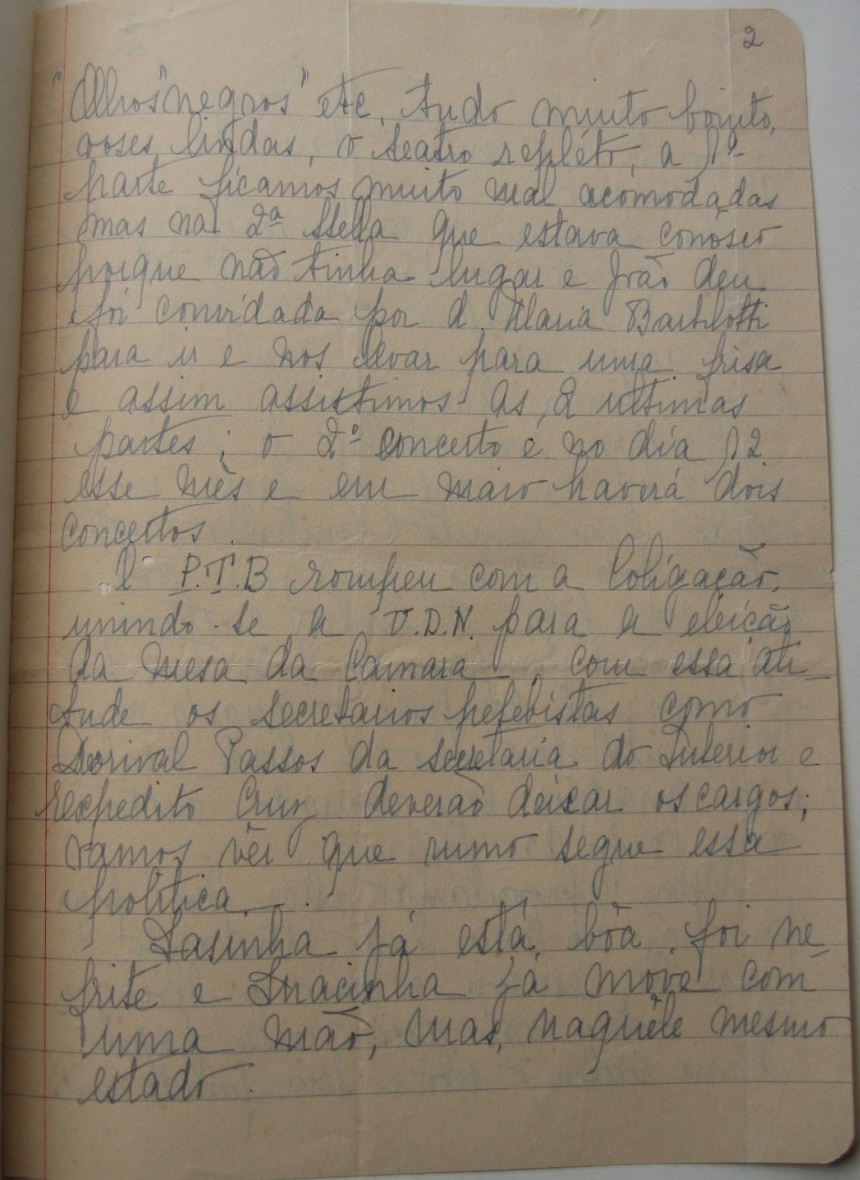 2
"Olhos "negros" etc, tudo muito bonito,
voses lindas, o teatro repléto, a 1ª
parte ficamos muito mal acomodadas
mas na 2ª Stella que estava conôsco
porque não tinha lugar e João deu
foi convidada por d. Maria Bartilotti
para ir e nos levar para uma frisa
e assim assistimos as 2 ultimas
partes; o 2º concerto é no dia 12
esse mês e em maio haverá dois
concertos.
O P.T.B rompeu com a Coligação,
unindo-se a U.D.N. para a eleição
da mesa da Camara, com essa ati-
tude os secretarios petebistas como
Dorival Passos da secretaria do Interior e
Expedito Cruz deverão deixar os cargos;
vamos vêr que rumo segue essa
politica.
já está bôa, foi ne-
frite e Inacinha já move com
uma mão, mas, naquêle mesmo
estado.